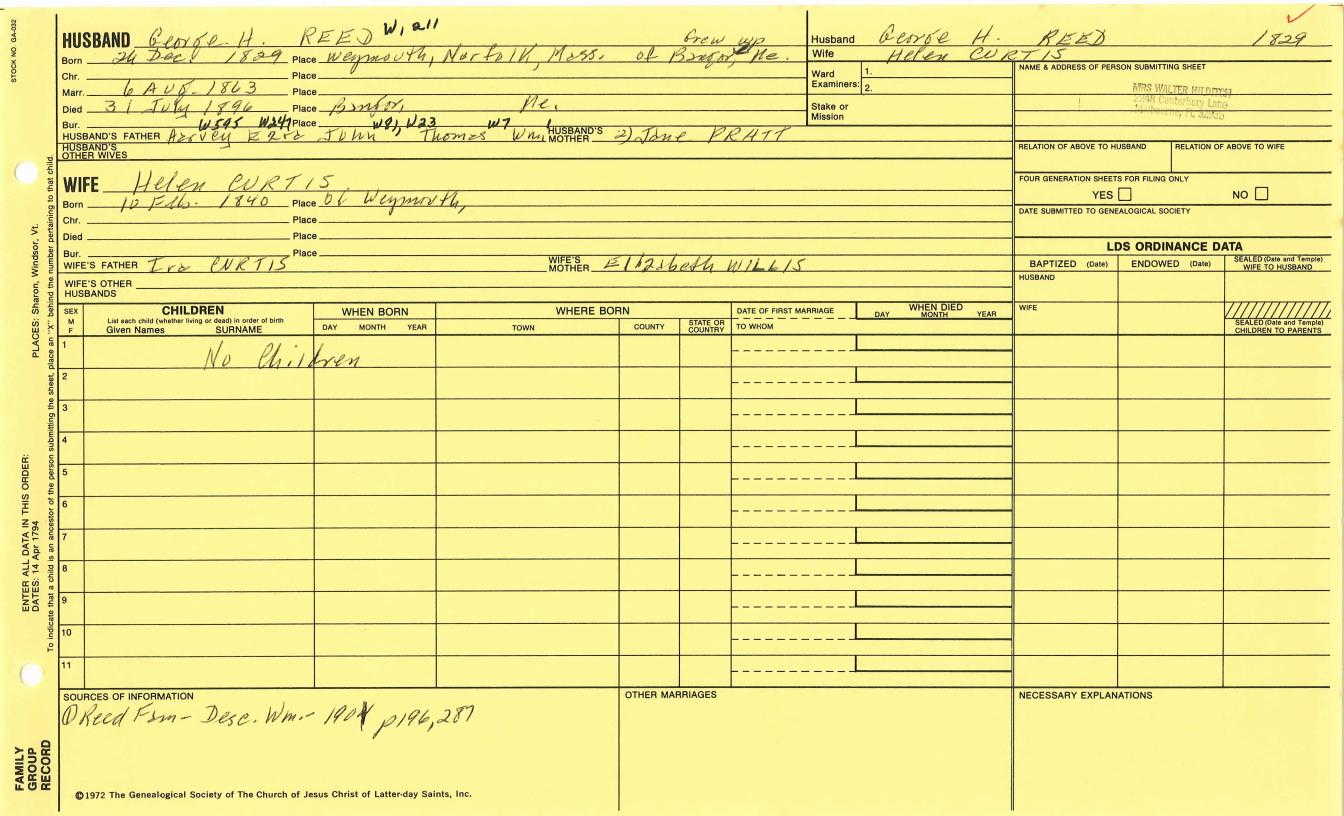 STOCK NO GA-032
HUSBAND George H. REED W, all
Born 24 Dec. 1829 Place Weymouth, Norfolk, Mass. of Bangor, Me. Grew up
Chr. Place
Marr. 6 AUG. 1863 Place
Died 31 July 1896 Place Bangor, Me.
Bur. W595 W247 Place W91, W23 W7 1
HUSBAND'S FATHER Harvey Ezra John Thomas Wm. HUSBAND'S MOTHER 2) Jane PRATT
HUSBAND'S OTHER WIVES
WIFE Helen CURTIS
Born 10 Feb. 1840 Place of Weymouth,
Chr. Place
Died Place
Bur. Place
WIFE'S FATHER Ira CURTIS WIFE'S MOTHER Elizabeth WILLIS
WIFE'S OTHER HUSBANDS
Husband George H. REED 1829
Wife Helen CURTIS
Ward Examiners: 1.
2.
Stake or Mission
NAME & ADDRESS OF PERSON SUBMITTING SHEET
MRS WALTER
Canterbury Lane
RELATION OF ABOVE TO HUSBAND RELATION OF ABOVE TO WIFE
FOUR GENERATION SHEETS FOR FILING ONLY
YES NO
DATE SUBMITTED TO GENEALOGICAL SOCIETY
LDS ORDINANCE DATA
BAPTIZED (Date) ENDOWED (Date) SEALED (Date and Temple) WIFE TO HUSBAND
HUSBAND
WIFE
SEALED (Date and Temple) CHILDREN TO PARENTS
SEX M F
CHILDREN
List each child (whether living or dead) in order of birth
Given Names SURNAME
WHEN BORN
DAY MONTH YEAR
WHERE BORN
TOWN COUNTY STATE OR COUNTRY
DATE OF FIRST MARRIAGE
TO WHOM
WHEN DIED
DAY MONTH YEAR
1 No Children
2
3
4
5
6
7
8
9
10
11
SOURCES OF INFORMATION
① Reed Fam- Desc. Wm.- 1901 p196, 287
OTHER MARRIAGES
NECESSARY EXPLANATIONS
©1972 The Genealogical Society of The Church of Jesus Christ of Latter-day Saints, Inc.
FAMILY GROUP RECORD
ENTER ALL DATA IN THIS ORDER:
DATES: 14 Apr 1794
PLACES: Sharon, Windsor, Vt.
To indicate that a child is an ancestor of the person submitting the sheet, place an "X" behind the number pertaining to that child.